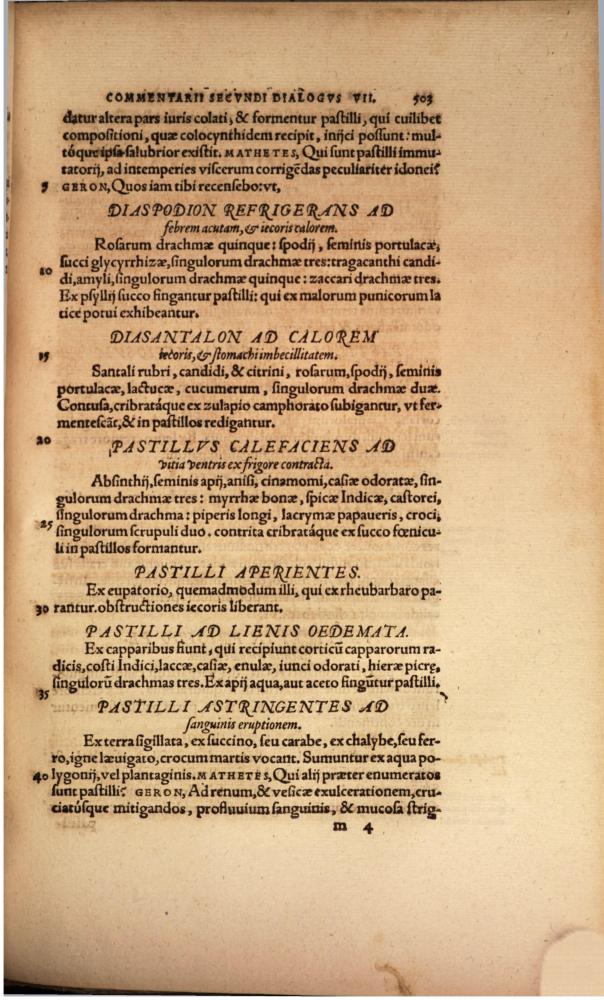 COMMENTARII SECVNDI DIALOGVS VII. 503
datur altera pars iuris colati, & formentur pastilli, qui cuilibet
compositioni, quæ colocynthidem recipit, inijci possunt: mul-
tóque ipsa salubrior existit. MATHETES, Qui sunt pastilli immu-
tatorij, ad intemperies viscerum corrigẽdas peculiariter idonei?
5 GERON, Quos iam tibi recensebo: vt,
DIASPODION REFRIGERANS AD
febrem acutam, & iecoris calorem.
Rosarum drachmæ quinque: spodij, seminis portulacæ,
succi glycyrrhizæ, singulorum drachmæ tres: tragacanthi candi-
10 di, amyli, singulorum drachmæ quinque: zaccari drachmæ tres.
Ex psyllij succo fingantur pastilli: qui ex malorum punicorum la
tice potui exhibeantur.
DIASANTALON AD CALOREM
15 iecoris, & stomachi imbecillitatem.
Santali rubri, candidi, & citrini, rosarum, spodij, seminis
portulacæ, lactucæ, cucumerum, singulorum drachmæ duæ.
Contusa, cribratáque ex zulapio camphorato subigantur, vt fer-
mentescãt, & in pastillos redigantur.
20 PASTILLVS CALEFACIENS AD
vitia ventris ex frigore contracta.
Absinthij, seminis apij, anisi, cinamomi, casiæ odoratæ, sin-
gulorum drachmæ tres: myrrhæ bonæ, spicæ Indicæ, castorei,
singulorum drachma: piperis longi, lacrymæ papaueris, croci,
25 singulorum scrupuli duo. contrita cribratáque ex succo fœnicu-
li in pastillos formantur.
PASTILLI APERIENTES.
Ex eupatorio, quemadmodum illi, qui ex rheubarbaro pa-
30 rantur. obstructiones iecoris liberant.
PASTILLI AD LIENIS OEDEMATA.
Ex capparibus fiunt, qui recipiunt corticũ capparorum ra-
dicis, costi Indici, laccæ, casiæ, enulæ, iunci odorati, hieræ picrę,
singulorũ drachmas tres. Ex apij aqua, aut aceto fingũtur pastilli.
35 PASTILLI ASTRINGENTES AD
sanguinis eruptionem.
Ex terra sigillata, ex succino, seu carabe, ex chalybe, seu fer-
ro, igne læuigato, crocum martis vocant. Sumuntur ex aqua po-
40 lygonij, vel plantaginis. MATHETES, Qui alij præter enumeratos
sunt pastilli? GERON, Ad renum, & vesicæ exulcerationem, cru-
ciatúsque mitigandos, profluuium sanguinis, & mucosa strig-
m 4